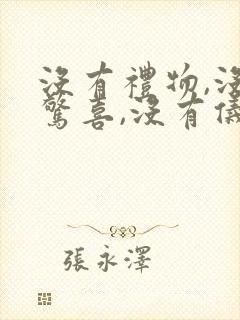 沒有禮物,沒
驚喜,沒有儀
張永澤